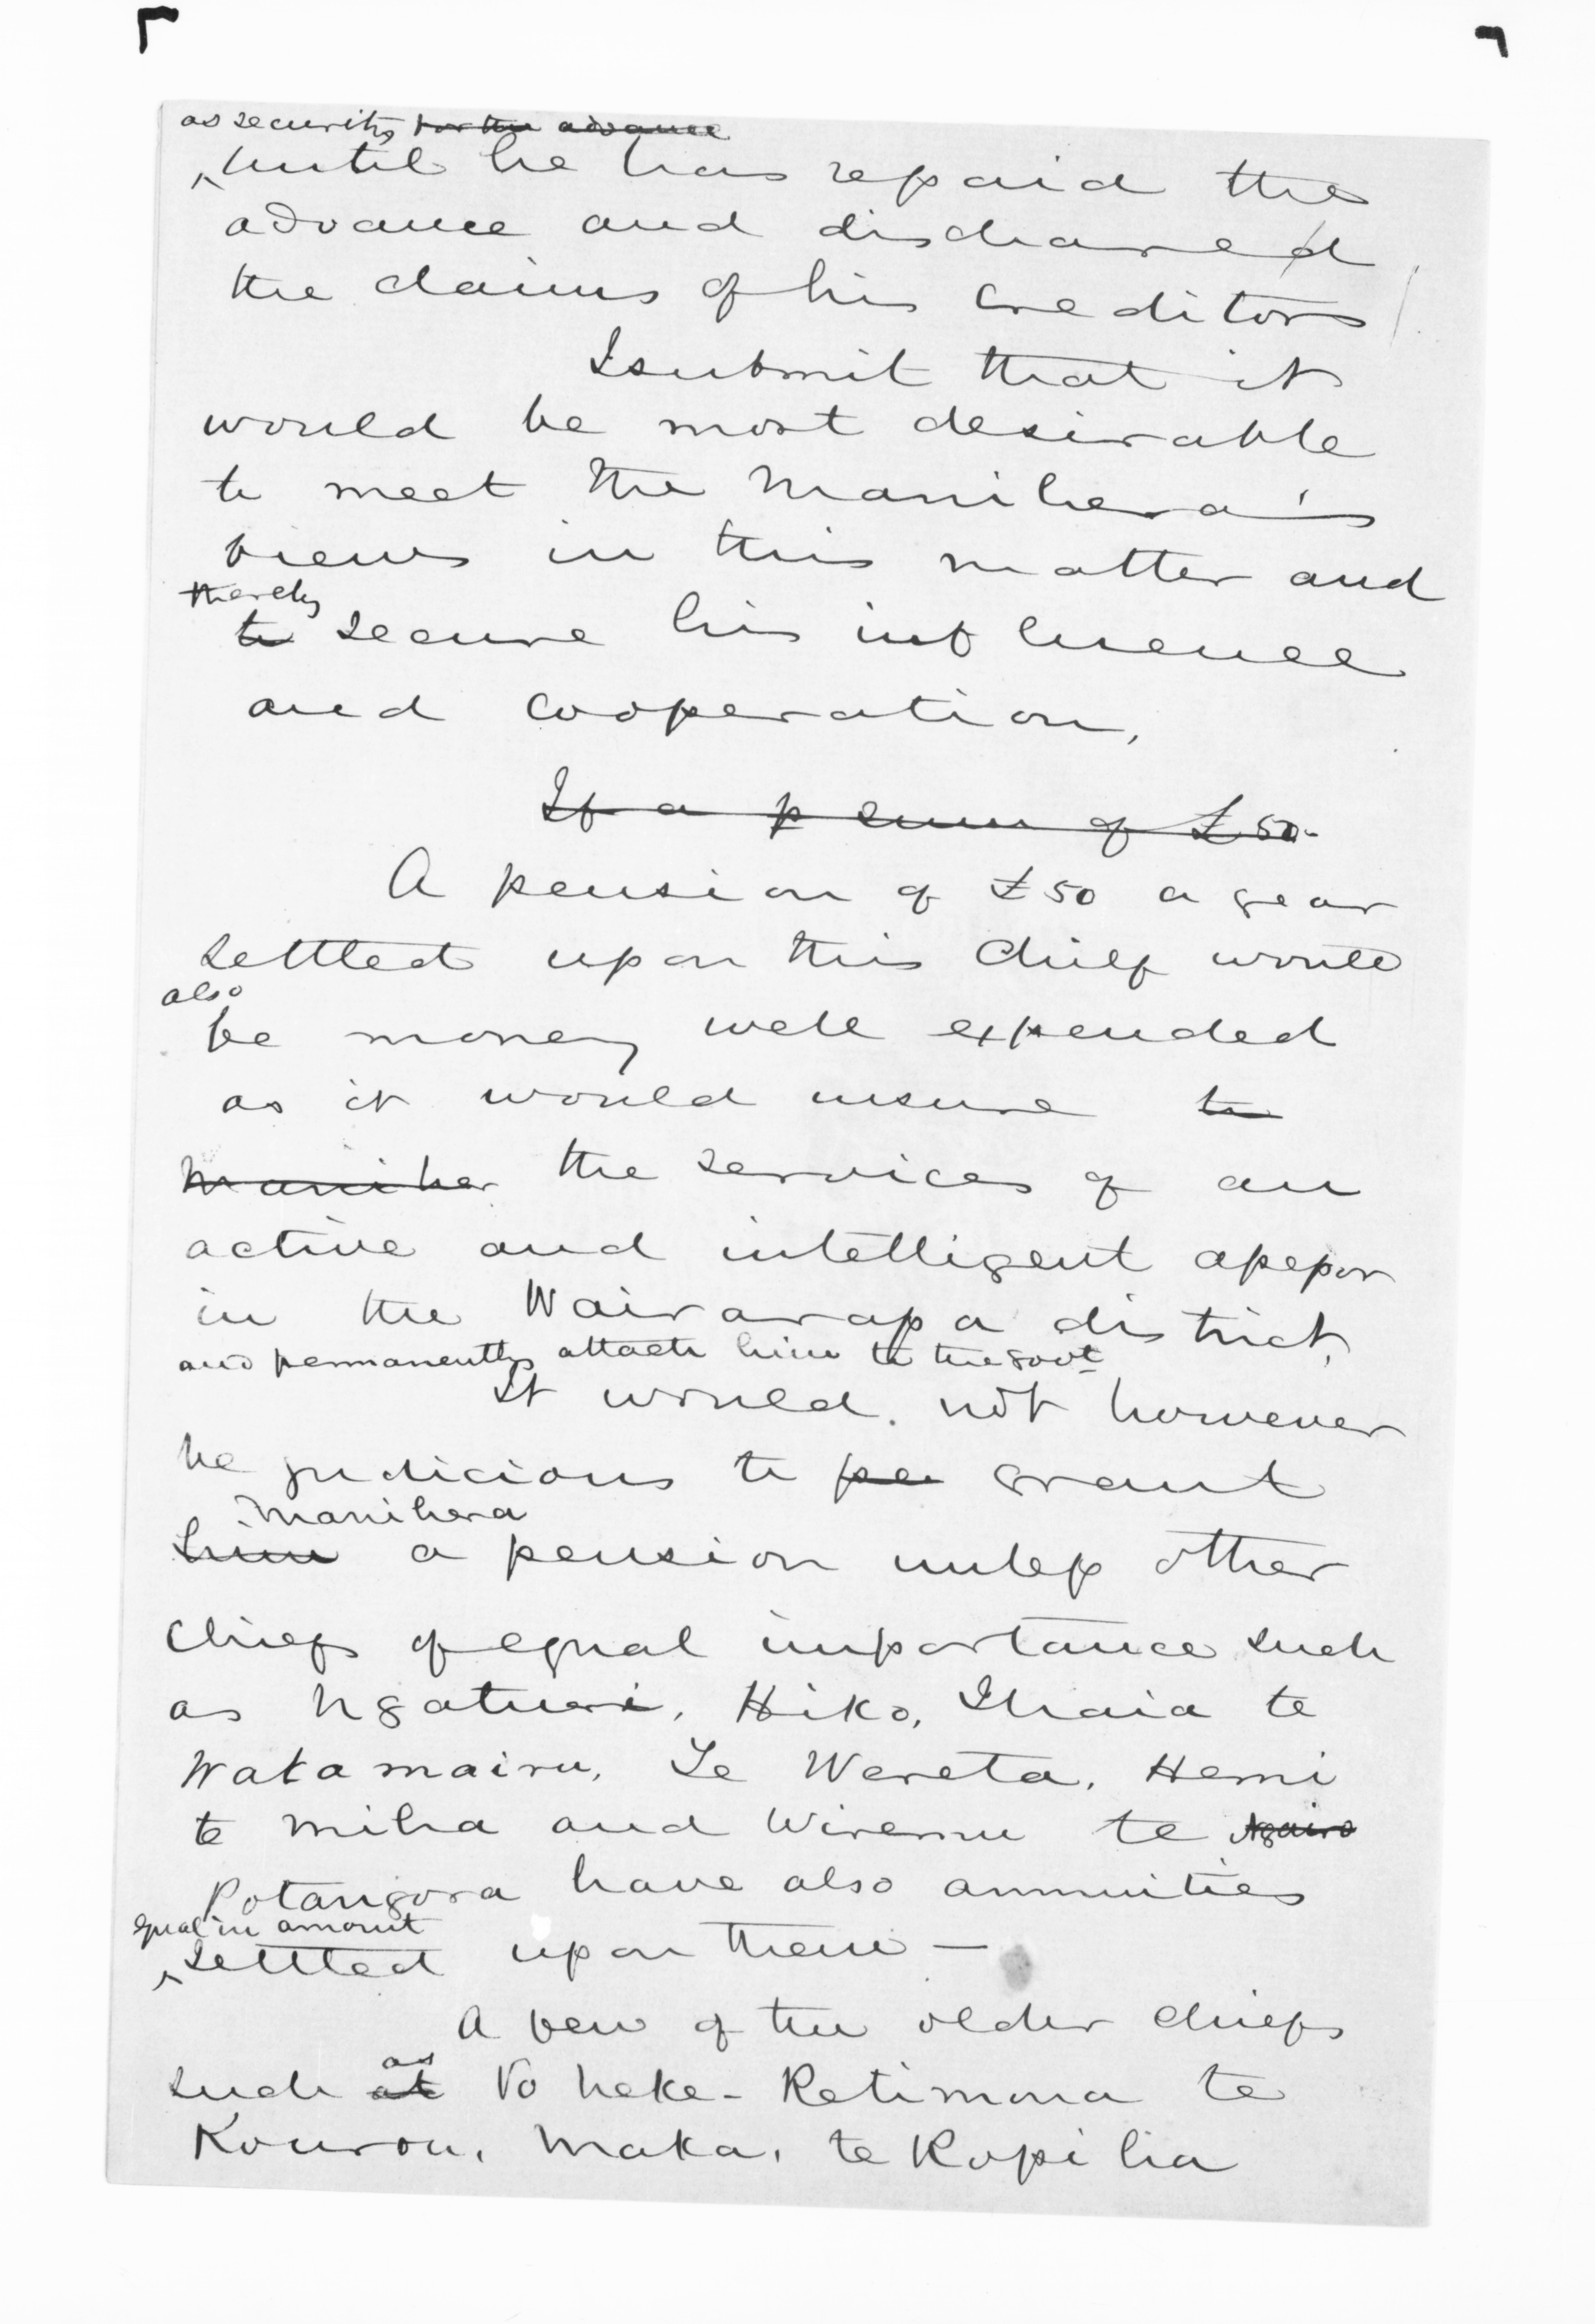 as security for the advance
until he has repaid the
advance and discharged
the claims of his creditors
I submit that it
would be most desirable
to meet the Manihera's
views in this matter and
thereby
to secure his influence
and cooperation,
If a p sum of £50
A pension of £50 a year
settled upon this Chief would
also
be money well expended
as it would insure to
Maniher the services of an
active and intelligent assessor
in the Wairarapa district,
and permanently attach him to the Govt
It would not however
be judicious to pe grant
Manihera
him a pension unless other
Chiefs of equal importance such
as Ngatuere, Hiko, Ihaia te
Wakamairu, Te Wereta, Hemi
te Miha and Wiremu te
Potangora have also annuities
equal in amount
settled upon them —
A few of the older chiefs
as
such at No heke - Retimona te
Kourou, Maka, te Kopiha